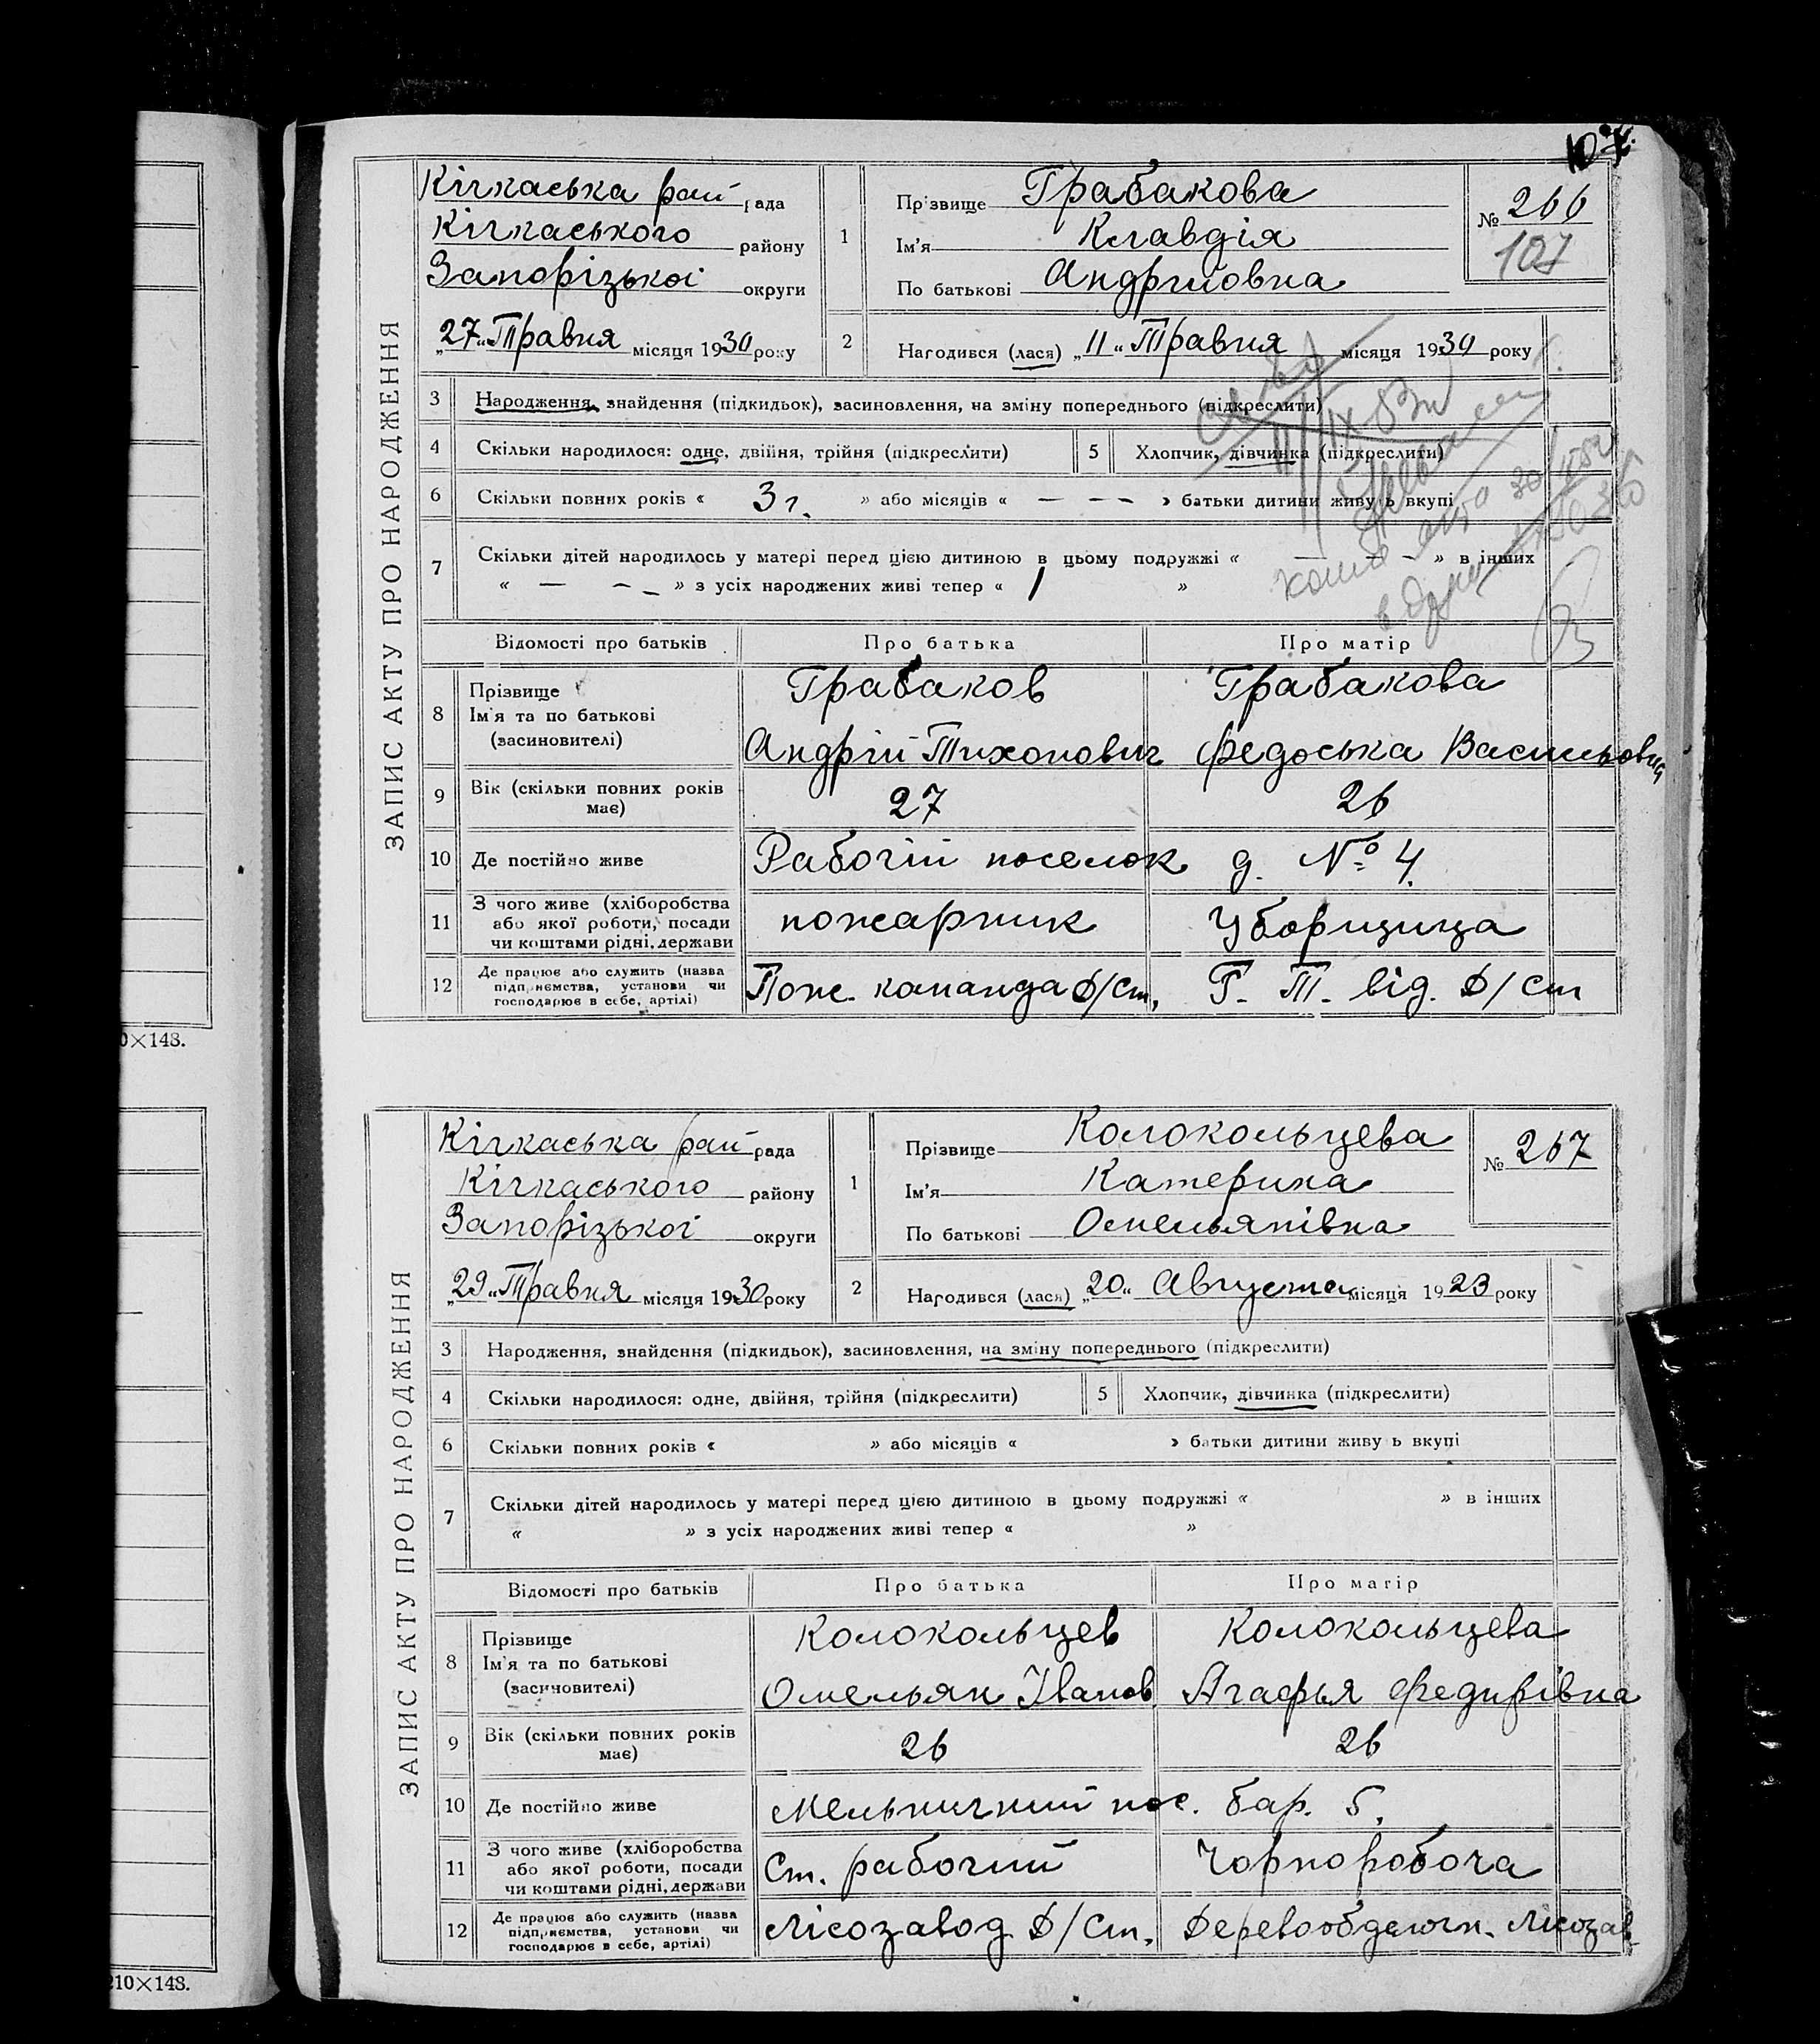 107
ЗАПИС АКТУ ПРО НАРОДЖЕННЯ
Кічкаська рай рада
Кічкаського району
Запорізької округи
„27“ Травня місяця 1930 року
1
Прізвище Грабакова
Ім'я Клавдія
По батькові Андрийовна
№ 266
107
2 Народився (лася) „11“ Травня місяця 1930 року
3 Народження, знайдення (підкидьок), засиновлення, на зміну попереднього (підкреслити)
4 Скільки народилося: одне, двійня, трійня (підкреслити) 5 Хлопчик, дівчинка (підкреслити)
6 Скільки повних років « 3 г. » або місяців « — — — » батьки дитини живуть вкупі
7 Скільки дітей народилось у матері перед цією дитиною в цьому подружжі « — — - » в інших
« — - – » з усіх народжених живі тепер « 1 »
Відомості про батьків Про батька Про матір
8 Прізвище Грабаков Грабакова
Ім'я та по батькові
(засиновителі) Андрій Тихонович Федоська Васильовна
9 Вік (скільки повних років має) 27 26
10 Де постійно живе Рабочій поселок д. № 4.
11 З чого живе (хліборобства
або якої роботи, посади
чи коштами рідні, держави пожарник Уборщица
12 Де працює або служить (назва
підприємства, установи чи
господарює в себе, артілі) Пож. команда Д/Ст, Г. Т. від. Д/Ст
0×148.
ЗАПИС АКТУ ПРО НАРОДЖЕННЯ
Кічкаська рай рада
Кічкаського району
Запорізької округи
„29“ Травня місяця 1930 року
1
Прізвище Колокольцева
Ім'я Катерина
По батькові Омельянівна
№ 267
2 Народився (лася) „20“ Августа місяця 1923 року
3 Народження, знайдення (підкидьок), засиновлення, на зміну попереднього (підкреслити)
4 Скільки народилося: одне, двійня, трійня (підкреслити) 5 Хлопчик, дівчинка (підкреслити)
6 Скільки повних років « » або місяців « » батьки дитини живуть вкупі
7 Скільки дітей народилось у матері перед цією дитиною в цьому подружжі « » в інших
« » з усіх народжених живі тепер « »
Відомості про батьків Про батька Про матір
8 Прізвище Колокольцев Колокольцева
Ім'я та по батькові
(засиновителі) Омельян Іванов. Агафья Федирівна
9 Вік (скільки повних років має) 26 26
10 Де постійно живе Мельничний пос. бар. 5.
11 З чого живе (хліборобства
або якої роботи, посади
чи коштами рідні, держави Ст. рабочий Чорноробоча
12 Де працює або служить (назва
підприємства, установи чи
господарює в себе, артілі) Лісозавод Д/Ст. Деревообделочн. Лісозав
210×148.